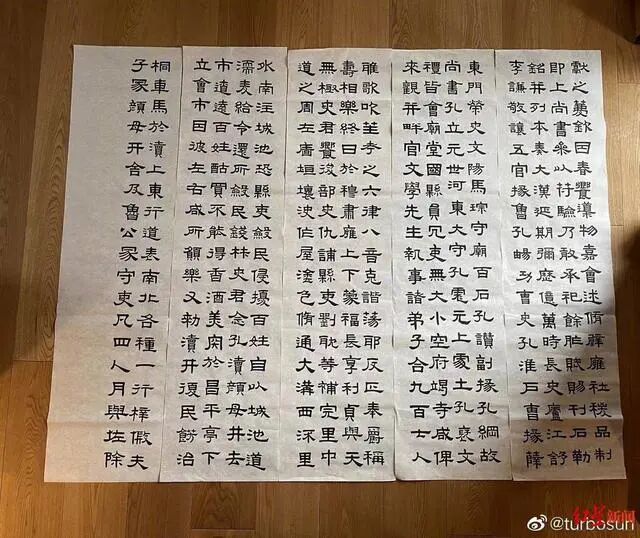 獻之薦欽因春饗導物嘉會述脩辟雍社稷品制
即上尚書參以符驗乃敢承祀餘胙賦賜刊石勒
銘并列本奏大漢延期彌歷億萬時長史廬江舒
李謙敬讓五官掾魯孔暢功曹史孔淮戶曹掾薛
東門榮史文陽馬琮守廟百石孔讚副掾孔綱故
尚書孔立元世河東大守孔彪元上處士孔褒文
禮皆會廟堂國縣員冗吏無大小空府竭寺咸俾
來觀并畔官文學先生執事諸弟子合九百七人
雅歌吹笙考之六律八音克諧蕩邪反正奉爵稱
壽相樂終日於穆肅雍上下蒙福長享利貞與天
無極史君饗後部史仇誧縣吏劉耽等補完里中
道之周左廧垣壞決作屋塗色脩通大溝西流里
外南注城池恐縣吏斂民侵擾百姓自以城池道
濡麥給令還所斂民錢材史君念孔瀆顏母井去
市遼遠百姓酤買不能得香酒美肉於昌平亭下
立會市因彼左右咸所願樂又勑瀆井復民飭治
桐車馬於瀆上東行道表南北各種一行梓假夫
子冢顏母开舍及魯公冢守吏凡四人月與佐除
红星新闻
@turbosun